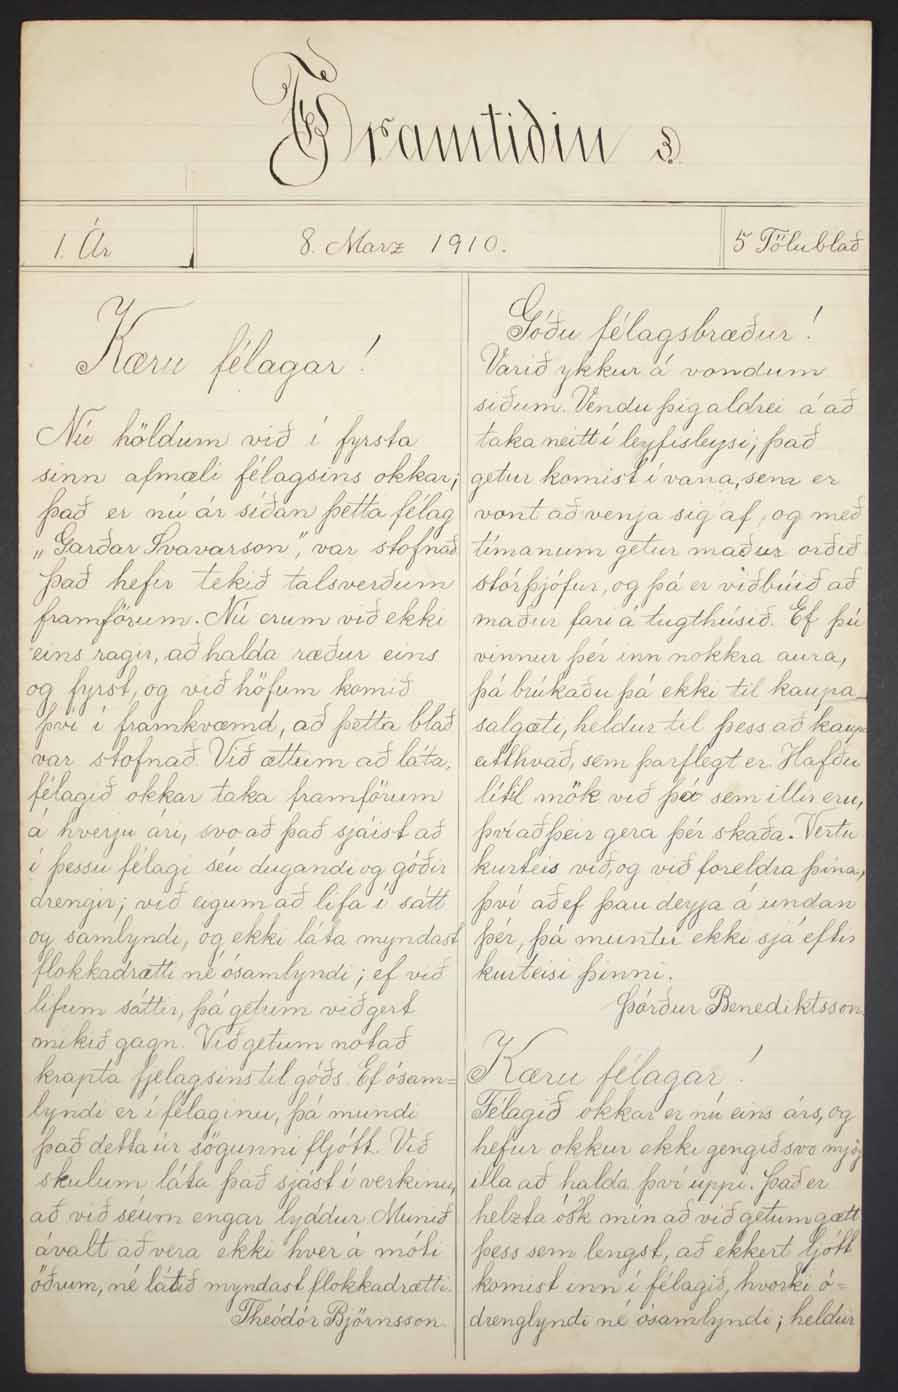 Framtíðin
1. Ár
8. Marz 1910.
5 Tölublað
Kæru félagar!
Nú höldum við í fyrsta
sinn afmæli félagsins okkar;
það er nú ár síðan þetta félag
„Garðar Svavarson", var stofnað
Það hefir tekið talsverðum
framförum. Nú erum við ekki
eins ragir, að halda ræður eins
og fyrst, og við höfum komið
því í framkvæmd, að þetta blað
var stofnað. Við ættum að láta,
félagið okkar taka framförum
á hverju ári, svo að það sjáist að
í þessu félagi séu dugandi og góðir
drengir; við eigum að lifa í sátt
og samlyndi, og ekki láta myndast
flokkadrætti né ósamlyndi; ef við
lifum sáttir, þá getum við gert
mikið gagn. Við getum notað
krapta fjelagsins til góðs. Ef ósam=
lyndi er í félaginu, þá mundi
það detta úr sögunni fljótt. Við
skulum láta það sjást í verkinu,
að við séum engar lyddur. Munið
ávalt að vera ekki hver á móti
öðrum, né látið myndast flokkadrætti.
Theódór Björnsson.
Góðu félagsbræður!
Varið ykkur á vondum
siðum. Vendu þig aldrei á að
taka neitt í leyfisleysi; það
getur komist í vana, sem er
vont að venja sig af, og með
tímanum getur maður orðið
stórþjófur, og þá er viðbúið að
maður fari á tugthúsið. Ef þú
vinnur þér inn nokkra aura,
þá brúkaðu þá ekki til kaupa
salgæti, heldur til þess að kaupa
eitthvað, sem þarflegt er. Hafðu
lítil mök við þá sem illir eru,
því að þeir gera þér skaða. Vertu
kurteis við, og við foreldra þína,
því að ef þau deyja á undan
þér, þá muntu ekki sjá eftir
kurteisi þinni.
Þórður Benediktsson.
Kæru félagar!
Félagið okkar er nú eins árs, og
hefur okkur ekki gengið svo mjög
illa að halda því uppi. Það er
helzta ósk mín að við getum gætt
þess sem lengst, að ekkert ljótt
komist inn í félagið, hvorki ó=
drenglyndi né ósamlyndi; heldur